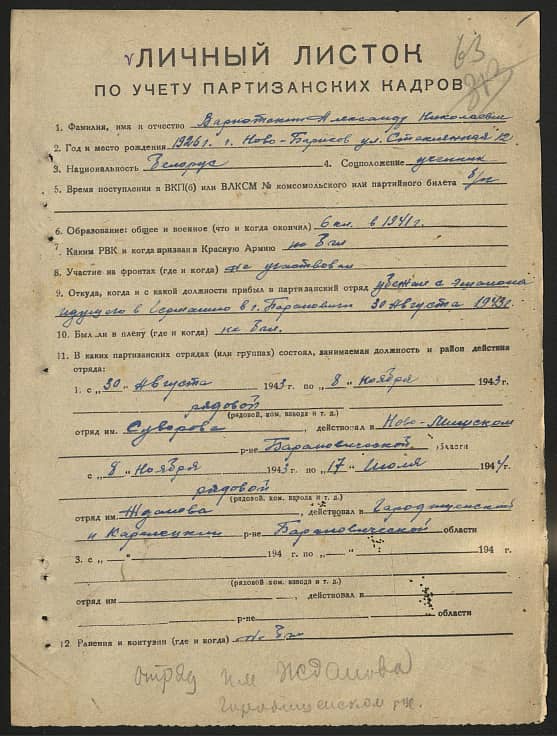 ЛИЧНЫЙ ЛИСТОК
63
ПО УЧЕТУ ПАРТИЗАНСКИХ КАДРОВ
1. Фамилия, имя и отчество Александр Николаевич
2. Год и место рождения 1926 г. г. Ново-Борисов ул. Стеклянная 12
3. Национальность Белорус 4. Соцположение ученик
5. Время поступления в ВКП(б) или ВЛКСМ № комсомольского или партийного билета б/п
6. Образование: общее и военное (что и когда окончил) 6 кл. в 1941 г.
7. Каким РВК и когда призван в Красную Армию не был
8. Участие на фронтах (где и когда) не участвовал
9. Откуда, когда и с какой должности прибыл в партизанский отряд убежал с эшалона
идущего в Германию в г. Барановичи 30 Августа 1943 г.
10. Был ли в плену (где и когда) не был.
11. В каких партизанских отрядах (или группах) состоял, занимаемая должность и район действия
отряда:
1. с „30" Августа 1943 г. по „8" ноября 1943 г.
рядовой
(рядовой, ком. взвода и т. д.)
отряд им. Суворова, действовал в Ново-Мышском
р-не Барановической области
с „8" Ноября 1943 г. по „17" Июля 1944 г.
рядовой
(рядовой, ком. взвода и т. д.)
отряд им. Жданова, действовал в Городищенский
и р-не Барановической области
3. с „—" 194 г. по „—" 194 г.
(рядовой ком. взвода и т. д.)
отряд им. , действовал в
р-не области
12. Ранения и контузии (где и когда) не был
отряд им Жданова
Городищенском р-не.